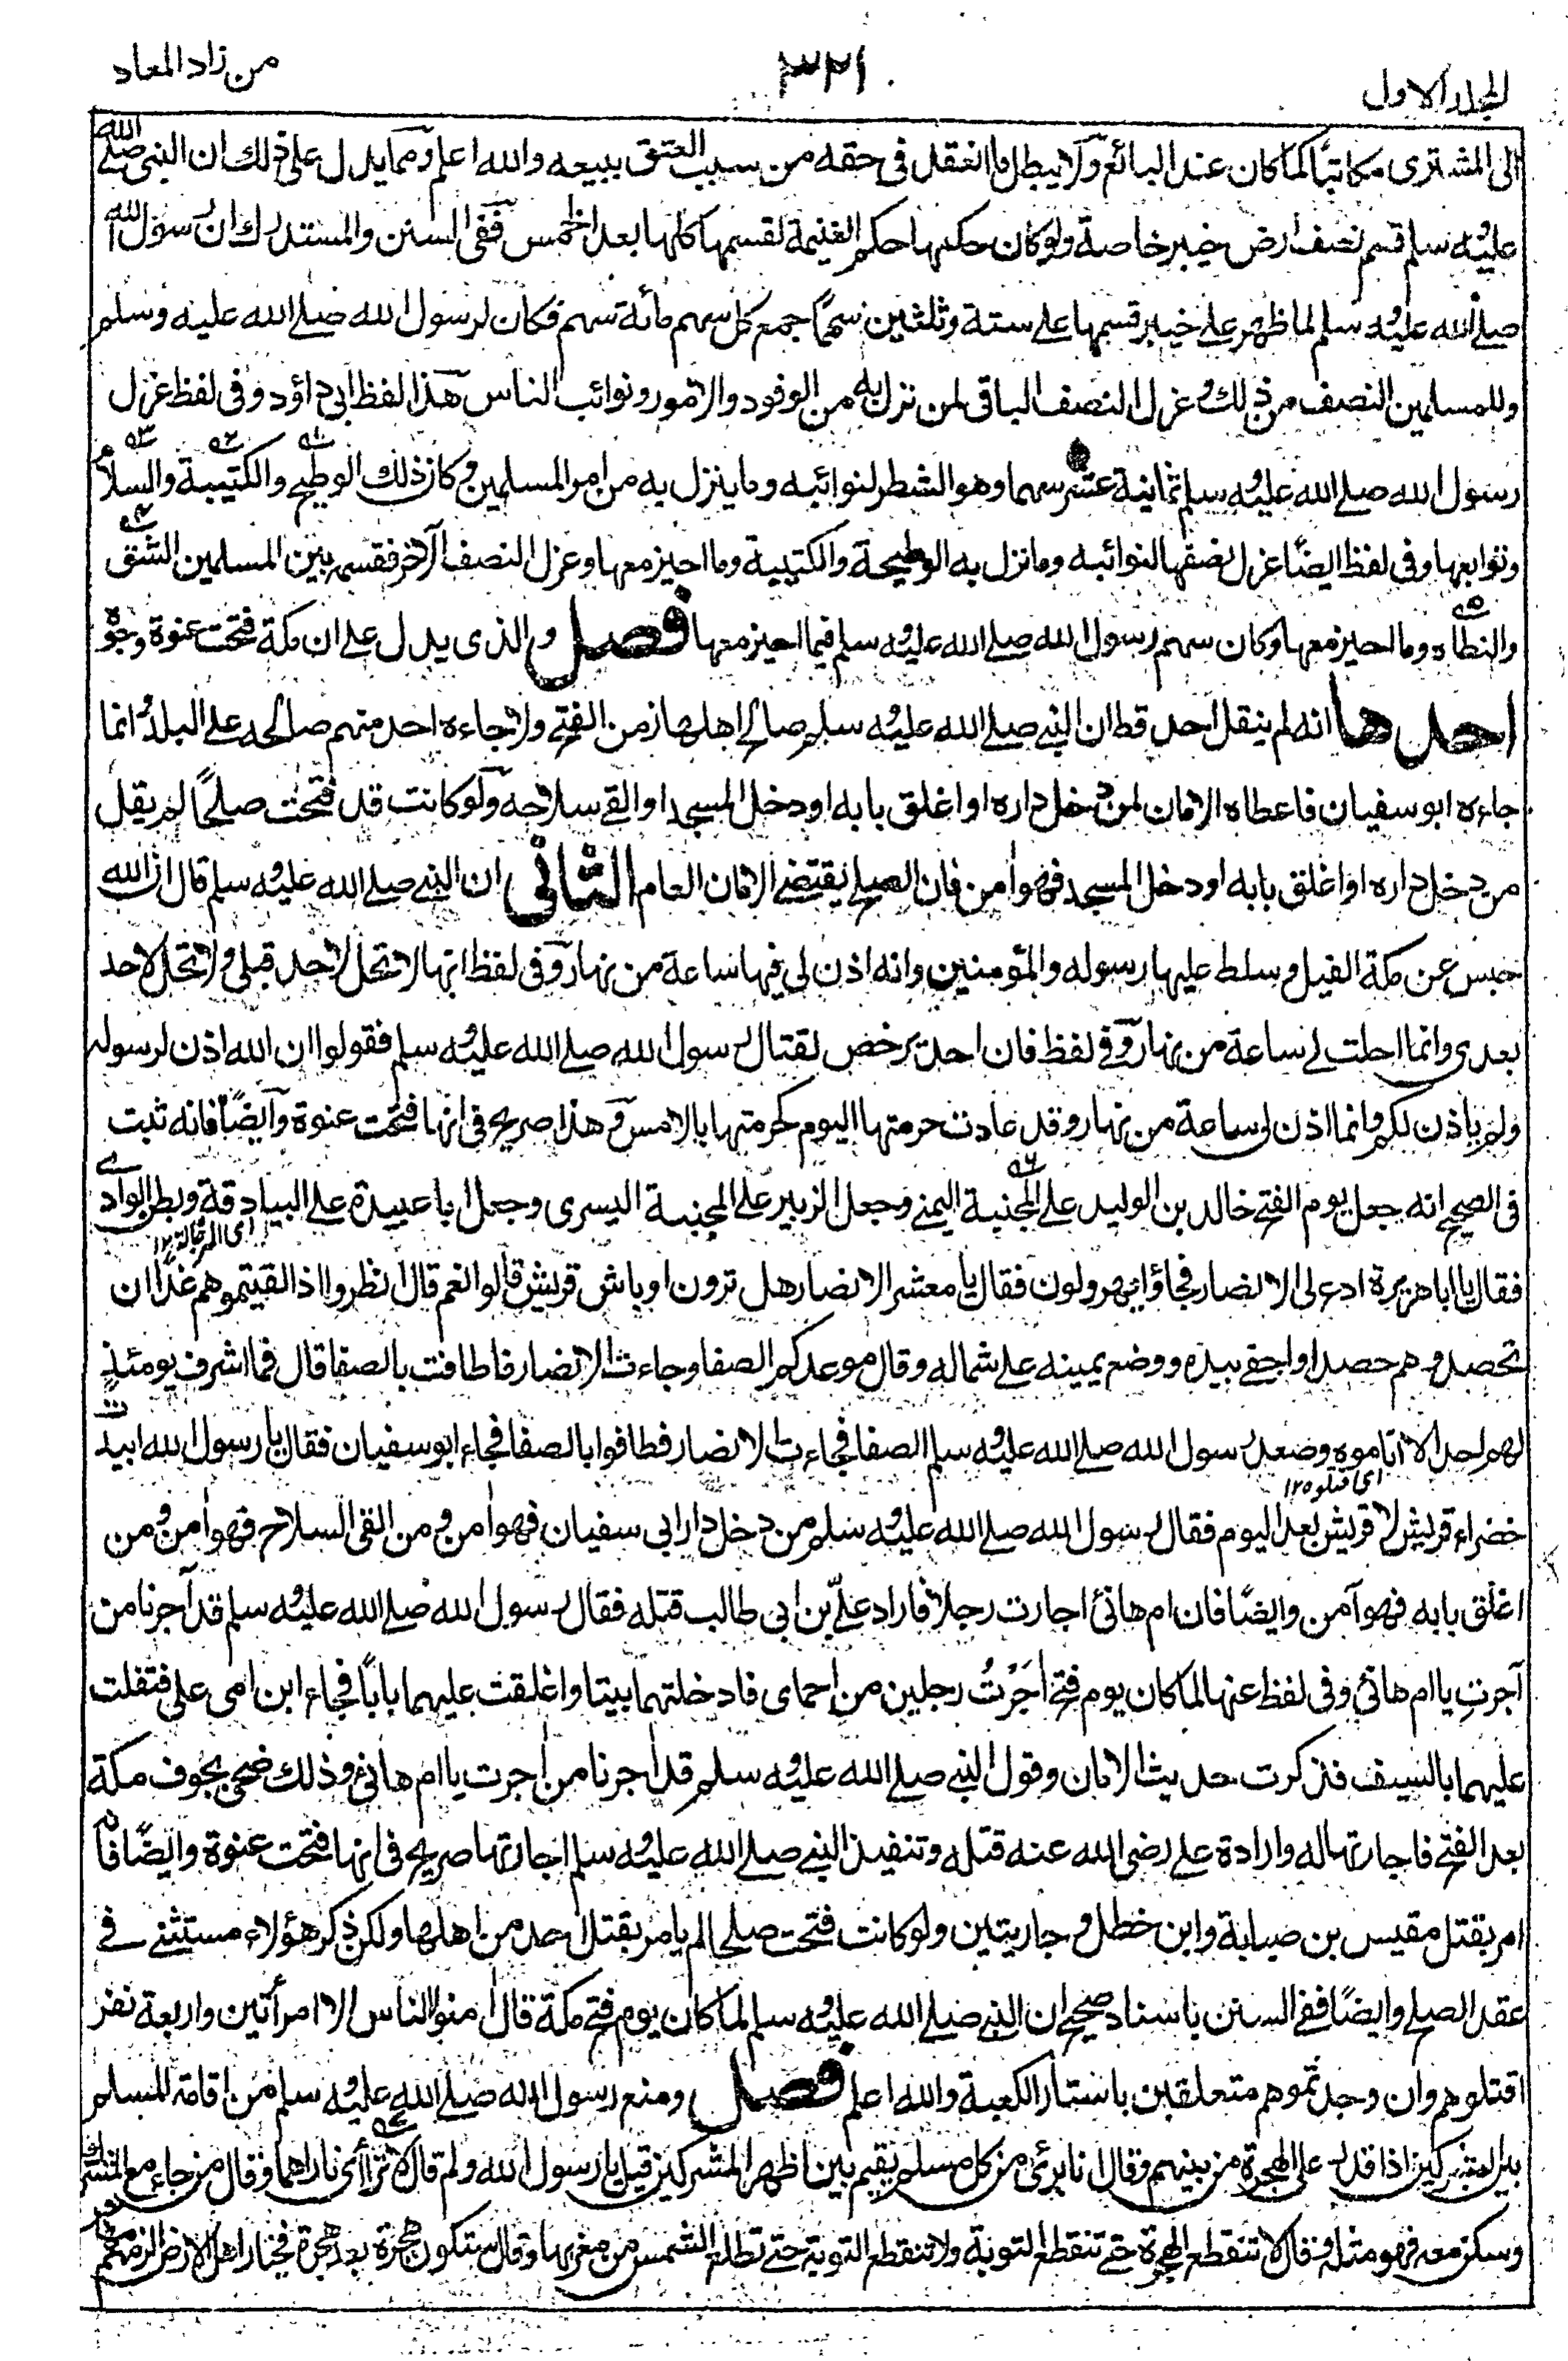 المجلد الاول
٣٢١
من زاد المعاد
الى المشترى مكاتبًا كما كان عند البائع ولا يبطل ما انعقد فى حقه من سبب العتق ببيعه والله اعلم ومما يدل على ذلك ان النبى صلى الله
عليه وسلم قسم نصف ارض خيبر خاصة ولو كان حكمها حكم الغنيمة لقسمها كلها بعد الخمس ففى السنن والمستدرك ان رسول الله
صلى الله عليه وسلم لما ظهر على خيبر قسمها على ستة وثلثين سهمًا جمع كل سهم مائة سهم فكان لرسول الله صلى الله عليه وسلم
وللمسلمين النصف من ذلك وعزل النصف الباقى لمن نزل به من الوفود والامور ونوائب الناس هذا لفظ ابى داؤد وفى لفظ عزل
رسول الله صلى الله عليه وسلم ثمانية عشر سهما وهو الشطر لنوائبه وما ينزل به من امر المسلمين وكان ذلك الوطيح والكتيبة والسلالم
وتوابعها وفى لفظ ايضًا عزل نصفها لنوائبه وما نزل به الوطيحة والكتيبة وما احيز معها وعزل النصف الآخر فقسمه بين المسلمين الشق
والنطاه وما احيز معها وكان سهم رسول الله صلى الله عليه وسلم فيما احيز معها فصل والذى يدل على ان مكة فتحت عنوة وجوه
احدها انه لم ينقل احد قط ان النبى صلى الله عليه وسلم صالح اهلها زمن الفتح ولا جاءه احد منهم صالحه على البلد وانما
جاءه ابو سفيان فاعطاه الامان لمن دخل داره او اغلق بابه او دخل المسجد او القى سلاحه ولو كانت قد فتحت صلحًا لم يقل
من دخل داره او اغلق بابه او دخل المسجد فهو أمن فان الصلح يقتضى الامان العام الثانى ان النبى صلى الله عليه وسلم قال ان الله
حبس عن مكة الفيل وسلط عليها رسوله والمؤمنين وانه اذن لى فيها ساعة من نهار وفى لفظ انها لا تحل لاحد قبلى ولا تحل لاحد
بعدى وانما احلت لى ساعة من نهار وفى لفظ فان احد ترخص لقتال رسول الله صلى الله عليه وسلم فقولوا ان الله اذن لرسوله
ولم ياذن لكم وانما اذن لى ساعة من نهار وقد عادت حرمتها اليوم كحرمتها بالامس وهذا صريح فى انها فتحت عنوة وآيضًا فانه ثبت
فى الصحيح انه جعل يوم الفتح خالد بن الوليد على المجنبة اليمنى وجعل الزبير على المجنبة اليسرى وجعل ابا عبيدة على البيادقة وبطن الوادى
اى الرجالة ١٢
فقال يا ابا هريرة ادع لى الانصار فجاؤا يهرولون فقال يا معشر الانصار هل ترون اوباش قريش قالوا نعم قال انظروا اذا لقيتموهم غدًا ان
تحصدوهم حصدا واحفى بيده ووضع يمينه على شماله وقال موعدكم الصفا وجاءت الانصار فاطافت بالصفا قال فما اشرف يومئذٍ
لهم احد الا اناموه وصعد رسول الله صلى الله عليه وسلم الصفا فجاءت الانصار فطافوا بالصفا فجاء ابو سفيان فقال يا رسول الله ابيدت
اى قتلوه ١٢
خضراء قريش لا قريش بعد اليوم فقال رسول الله صلى الله عليه وسلم من دخل دار ابى سفيان فهو أمن ومن القى السلاح فهو أمن ومن
اغلق بابه فهو آمن وايضًا فان ام هانئ اجارت رجلا فاراد علىّ بن ابى طالب قتله فقال رسول الله صلى الله عليه وسلم قد آجرنا من
آجرتِ يا ام هانئ وفى لفظ عنها لما كان يوم فتح أَجَرْتُ رجلين من احماى فادخلتهما بيتا واغلقت عليهما بابًا فجاء ابن امى على فتفلت
عليهما بالسيف فذكرت حديث الامان وقول النبى صلى الله عليه وسلم قد أجرنا من أجرت يا ام هانئ وذلك ضحى بجوف مكة
بعد الفتح فاجارتها له وارادة على رضى الله عنه قتله وتنفيذ النبى صلى الله عليه وسلم اجارتها صريح فى انها فتحت عنوة وايضًا فانه
امر بقتل مقيس بن صبابة وابن خطل وجاريتين ولو كانت فتحت صلحا لم يامر بقتل احد من اهلها ولكن ذكر هؤلاء مستثنى فى
عقد الصلح وايضًا ففى السنن باسناد صحيح ان النبى صلى الله عليه وسلم لما كان يوم فتح مكة قال أمنوا الناس الا امرأتين واربعة نفر
اقتلوهم وان وجدتموهم متعلقين باستار الكعبة والله اعلم فصل ومنع رسول الله صلى الله عليه وسلم من اقامة المسلم
بين المشركين اذا قدر على الهجرة من بينهم وقال انا برئ من كل مسلم يقيم بين اظهر المشركين قيل يا رسول الله ولم قال لا تراأى ناراهما وقال من جاء مع المشرك
وسكن معه فهو مثله وقال لا تنقطع الهجرة حتى تنقطع التوبة ولا تنقطع التوبة حتى تطلع الشمس من مغربها وقال ستكون هجرة بعد هجرة فخيار اهل الارض الزمهم